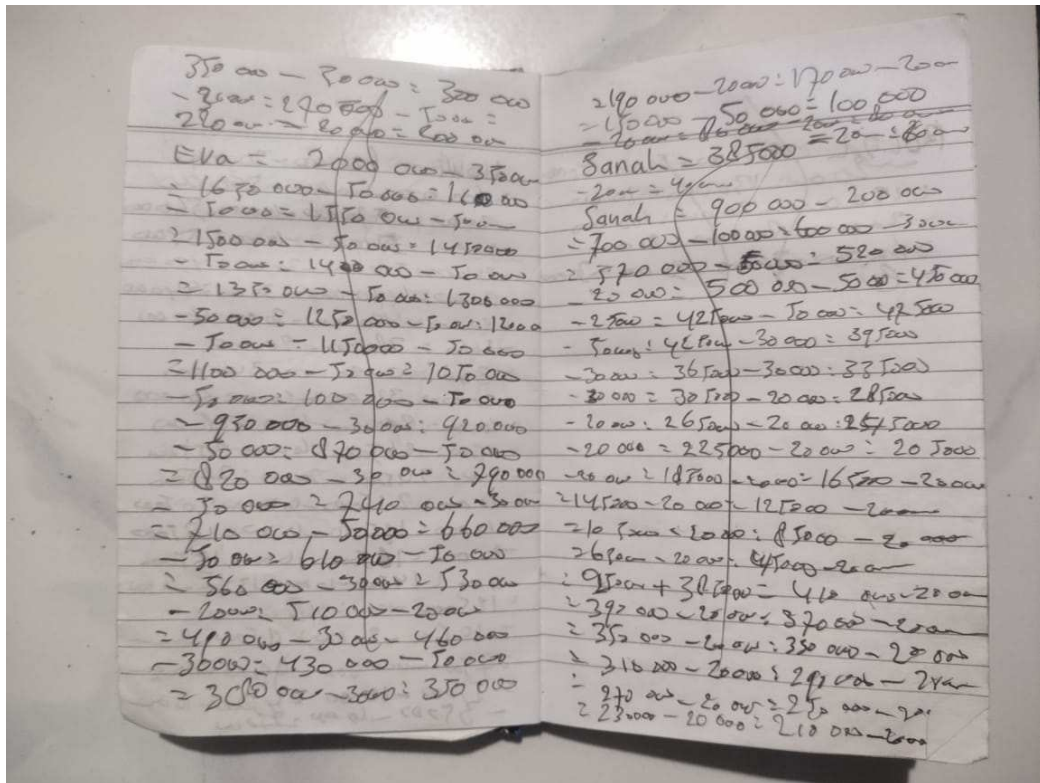 350 000 - 50 000 = 300 000
= 290 000 - 5000 =
220 000 - 20 000 = 200 000
EVa = 2000 000 - 350 000
= 1650 000 - 50 000 =
- 50 000 = 1550 000 - 50 000
= 1500 000 - 50 000 = 1450 000
- 50 000 = 1400 000 - 50 000
= 1350 000 - 50 000 = 1300 000
- 50 000 = 1250 000 - 50 000 = 1200 0
- 50 000 = 1150 000 - 50 000
= 1100 000 - 50 000 = 1050 000
- 50 000 = 100 000 - 50 000
= 950 000 - 30 000 = 920 000
- 50 000 = 870 000 - 50 000
= 820 000 - 30 000 = 790 000
- 50 000 = 740 000 - 30 000
= 710 000 - 50 000 = 660 000
- 50 000 = 610 000 - 50 000
= 560 000 - 30 000 = 530 000
- 20 000 = 510 000 - 20 000
= 490 000 - 30 000 = 460 000
- 30 000 = 430 000 - 50 000
= 380 000 - 30 000 = 350 000
= 190 000 - 20 000 = 170 000 - 20 000
= 150 000 - 50 000 = 100 000
Sanah = 385000
- 20 000 =
Sanah = 900 000 - 200 000
= 700 000 - 100 000 = 600 000 - 30 000
= 570 000 - 50 000 = 520 000
- 20 000 = 500 000 - 50 00 = 450 000
- 25000 = 425000 - 50 000 = 425000
- 50 000 = 425000 - 30 000 = 395000
- 30 000 = 365000 - 30 000 = 335000
- 30 000 = 305000 - 20 000 = 285000
- 20 000 = 265000 - 20 000 = 245000
- 20 000 = 225000 - 20 000 = 205000
- 20 000 = 185000 - 20 000 = 165000 - 20 000
= 145000 - 20 000 = 125000 - 20 000
= 105000 - 20 000 = 85000 - 20 000
= 65000 - 20 000 = 45000 - 20 000
= 25000 + 385000 = 410 000 - 20 000
= 390 000 - 20 000 = 370 000 - 20 000
= 350 000 - 20 000 = 330 000 - 20 000
= 310 000 - 20 000 = 290 000 - 20 000
= 270 000 - 20 000 = 250 000 - 20
= 230 000 - 20 000 = 210 000 - 20 000